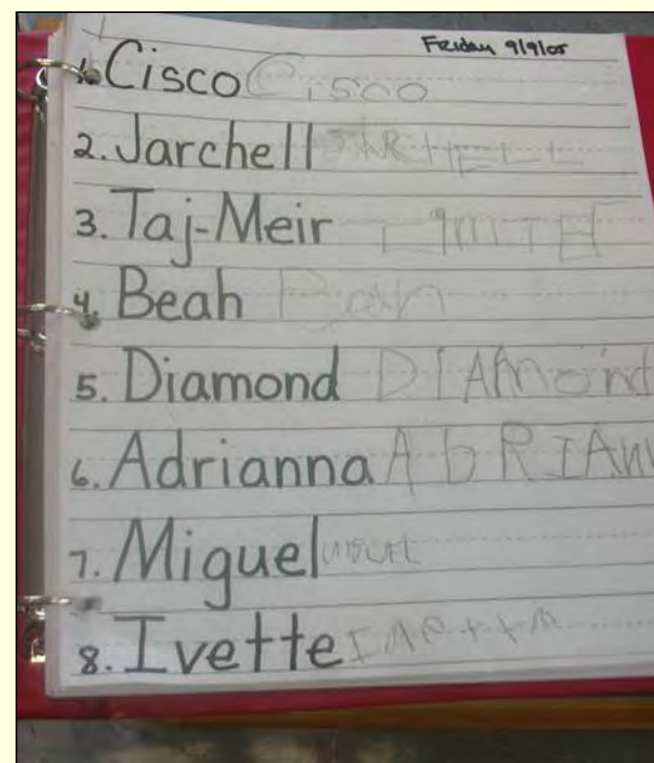 Friday 9/9/05
1. Cisco Cisoo
2. Jarchell JARCHELL
3. Taj-Meir
4. Beah Beah
5. Diamond DIAmond
6. Adrianna AbRIAnn
7. Miguel
8. Ivette